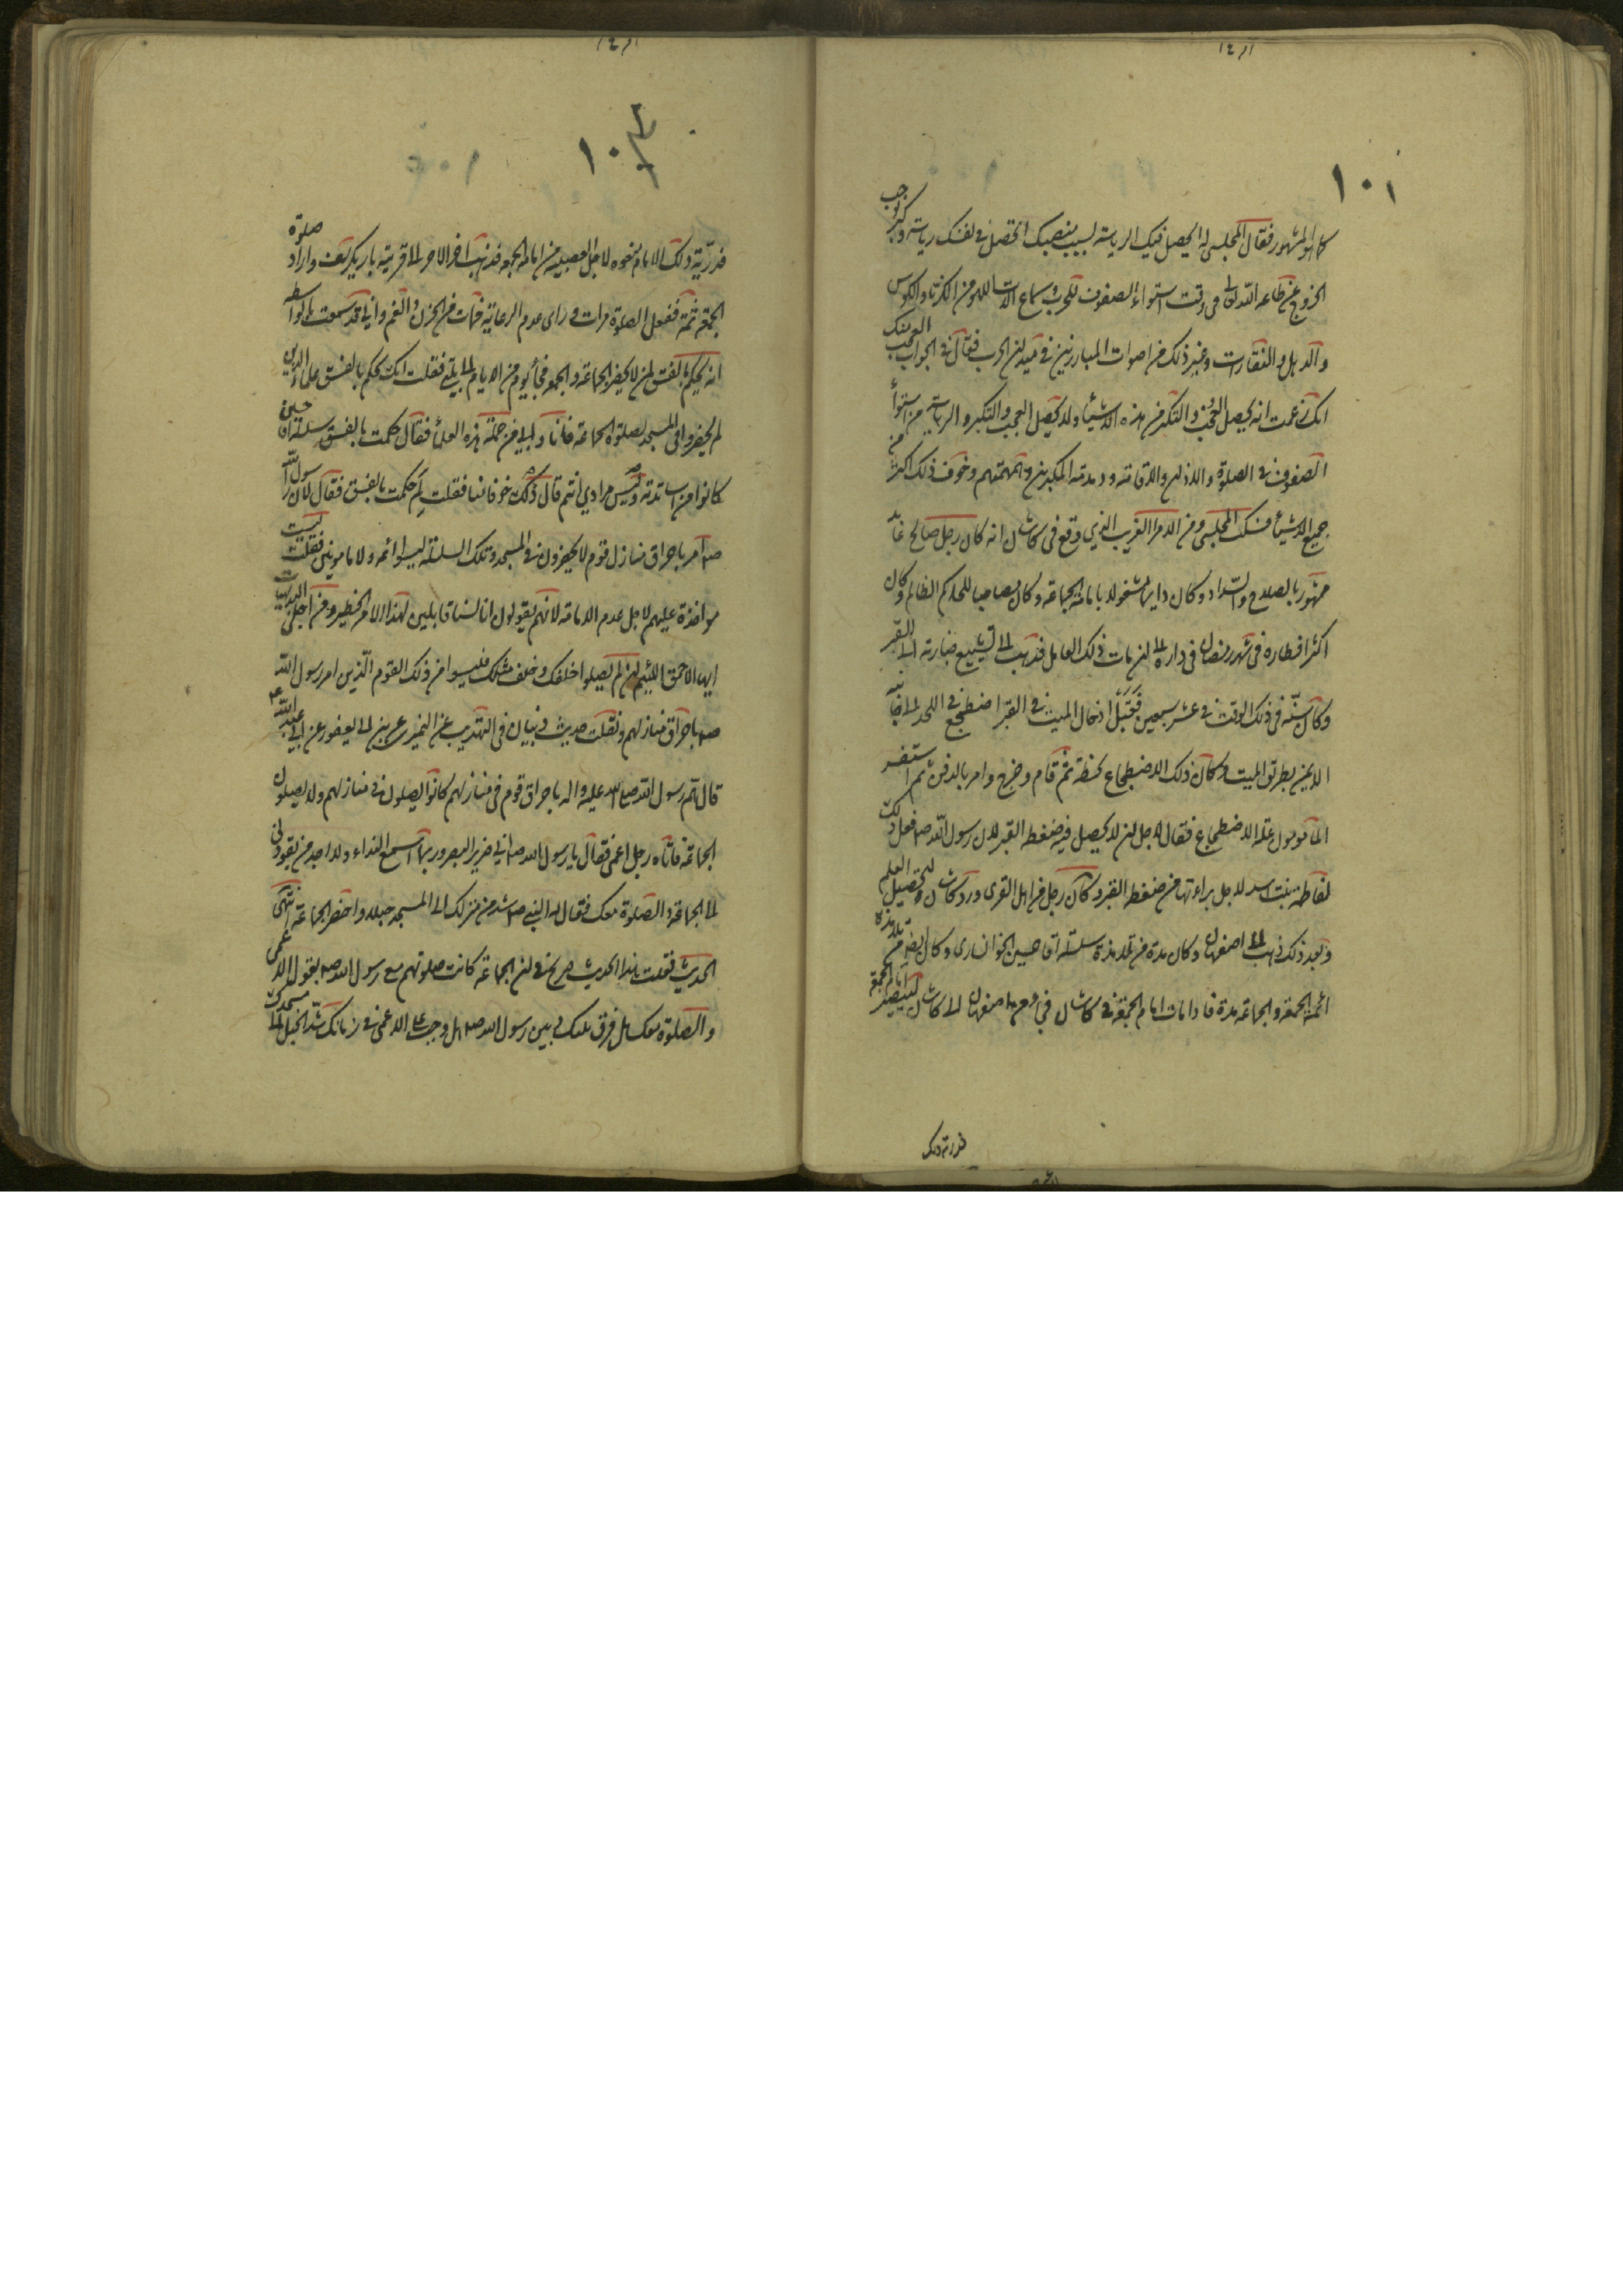 ١٠١
كما هو المشهور فقال المجلسي له ايحصل فيك الرياسة لسبب منصبك اتحصل في نفسك رياسة وكبر
الخروج عن طاعة الله تعالى في وقت استواء الصفوف للحرب وسماع الات اللهو من الكرنا والكوس
والدهل والنقارات وغير ذلك من اصوات المبارزين في ميدان الحرب فقال في الجواب العجب منك
انك زعمت انه يحصل العجب والتكبر من هذه الاشياء ولا يحصل العجب والتكبر والرياسة من استواء
الصفوف في الصلوة والاذان والاقامة و المكبرين و همهمتهم وخوف ذلك اكثر من
جميع الاشياء فسكت المجلسي ومن الامر الغريب الذي وقع في كاشان انه كان رجل صالح عابد
مشهور بالصلاح والسداد وكان دايما مشغولا بامامة الجماعة وكان مصاحبا للحاكم الظالم وكان
اكثر افطاره في شهر رمضان في داره الى ان مات ذلك العامل فذهب الى تشييع جنازته الى القبر
وكان سنه في ذلك الوقت في عشر سبعين فقبل ادخال الميت في القبر اضطجع في اللحد الى جانبه
الايمن بطريق الميت وكان ذلك الاضطجاع لحظة ثم قام وخرج وامر بالدفن ثم استفسر
المأمومون علة الاضطجاع فقال لاجل ان لا يحصل فيه ضغطه القبر لان رسول الله ص فعل ذلك
لفاطمة بنت اسد لاجل براءتها من ضغطه القبر وكان رجل من اهل القرى ورد كاشان لتحصيل العلم
وبعد ذلك ذهب الى اصفهان وكان مدة من تلامذة سلسلة اقا حسين الخوانساري وكان ايضا من تلامذة
ائمة الجمعة والجماعة مدة فاذا مات امام الجمعة في كاشان من اصفهان الى كاشان ليصير امام الجمعة
١٠٢
ذلك الامام نحوه لاجل العصبية من امامة الجمعة فذهب اخر الامر الى قرية باريكرسف واراد صلوة
الجمعة ثمة ففعل الصلوة مرات و راى عدم الرعاية فمات من الحزن والغم واني قد سمعت بالواسطه
انه يحكم بالفسق لمن لا يحضر الجماعة والجمعة فجاء يوم من الايام الى بيتي فقلت انك تحكم بالفسق علماء الدين
لم يحضروا في المسجد لصلوة الجماعة فانا وابي من جملة هذه العلماء فقال حكمت بالفسق سلسلة اقا حسين
كانوا من اساتذته وليس مرادي انتم قال ذلك خوفا منا فقلت لم حكمت بالفسق فقال لان رسول الله
ص امر باحراق منازل قوم لا يحضرون في المسجد وتلك السلسلة ليسوا ائمة ولا مامومين فقلت ليست
مواخذة عليهم لاجل عدم الامامة لانهم يقولون انا لسنا قابلين لهذا الامر الخطير ومن اجل
ايها الاحمق اللئيم ان لم يصلوا خلفك وخلف مثلك فليسوا من ذلك القوم الذين امر رسول الله
ص باحراق منازلهم ونقلت حديث ذبيان في التهذيب عن النميري عن ابن ابي يعفور عن ابي عبد الله ع
قال هم رسول الله صلى الله عليه واله باحراق قوم في منازلهم كانوا يصلون في منازلهم ولا يصلون
الجماعة فاتاه رجل اعمى فقال يا رسول الله ص اني ضرير البصر وربما اسمع النداء ولا اجد من يقودني
الى الجماعة والصلوة معك فقال له النبي ص شد من منزلك الى المسجد حبلا واحضر الجماعة انتهى
الحديث فقلت هذا الحديث صريح في ان الجماعة كانت صلوتهم مع رسول الله ص بقول الاعمى
والصلوة معك هل فرق بينك وبين رسول الله ص هل وجب على الاعمى في زمانك شد الحبل الى مسجدك